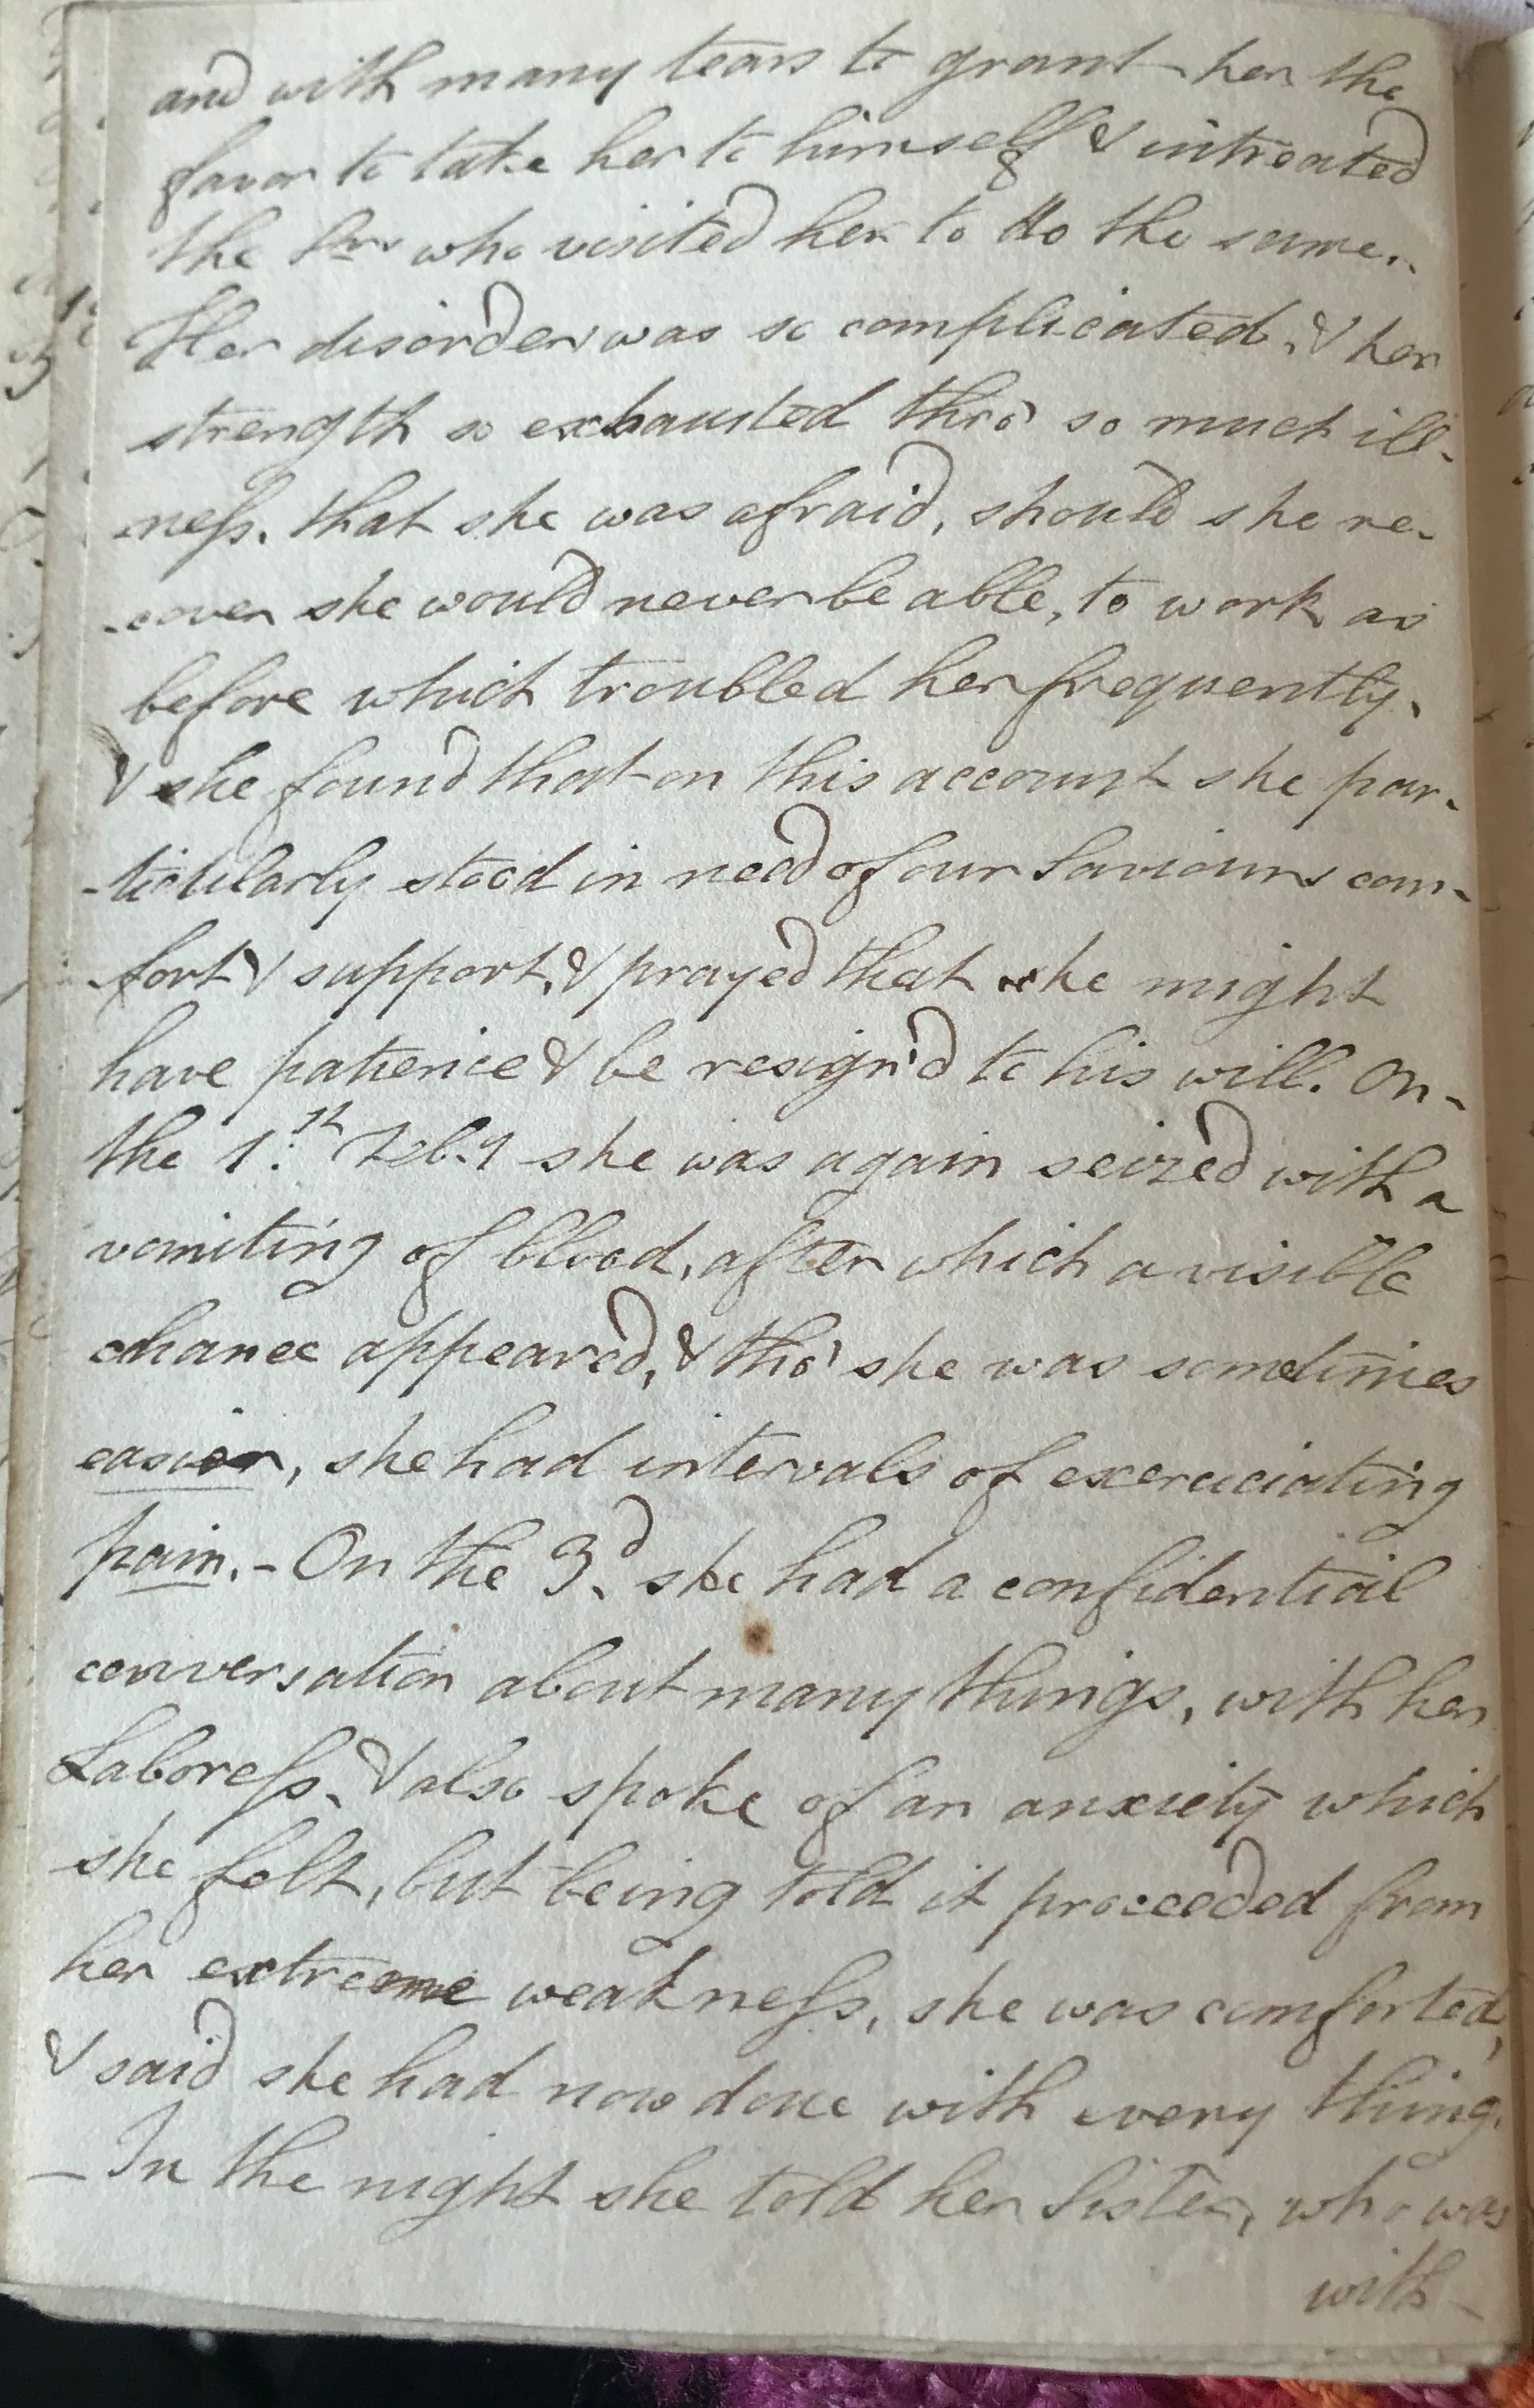 and with many tears to grant her the
favor to take her to himself & intreated
the Srs who visited her to do the same.
Her disorder was so complicated, & her
strength so exhausted thro' so much ill-
ness, that she was afraid, should she re-
-cover she would never be able, to work as
before which troubled her frequently,
& she found that on this account she par-
-ticularly stood in need of our Saviours com-
-fort & support, & prayed that she might
have patience & be resign'd to his will. On-
the 1st Feb.y she was again seized with a
vomiting of blood, after which a visible
chance appeared, & tho' she was sometimes
easier, she had intervals of excruciating
pain. - On the 3d she had a confidential
conversation about many things, with her
Laboress, & also spoke of an anxiety which
she felt, but being told it proceeded from
her extreme weakness, she was comforted,
& said she had now done with every thing.
- In the night she told her Sister, who was
with